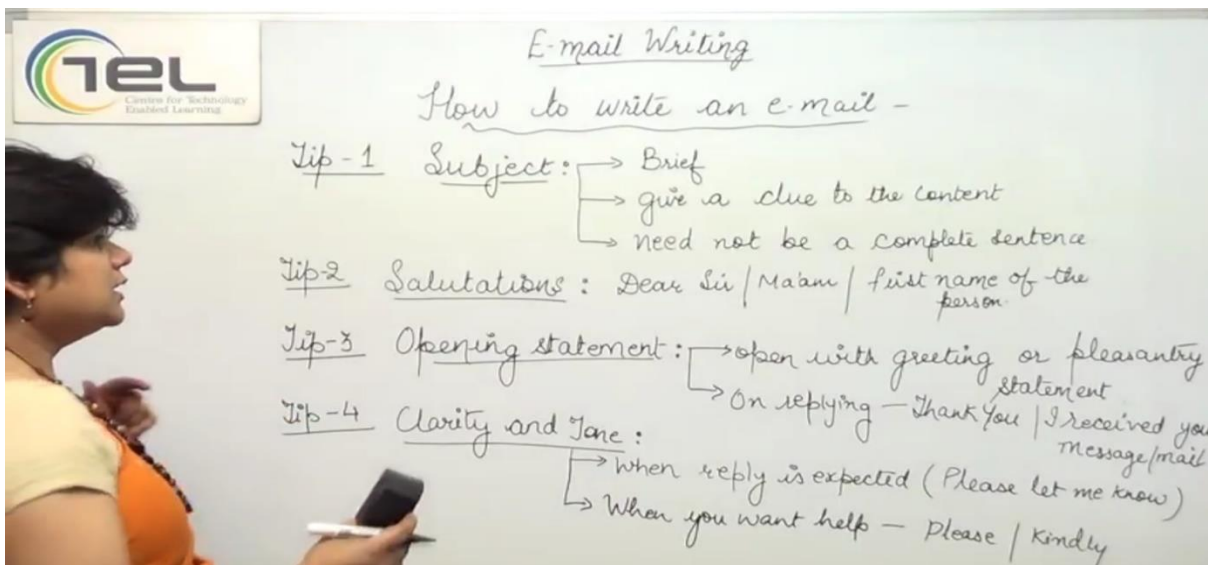 TEL
Centre for Technology
Enabled Learning
E-mail Writing
How to write an e-mail -
Tip - 1 Subject: → Brief
→ give a clue to the content
→ need not be a complete sentence
Tip-2 Salutations: Dear Sir / Ma'am / first name of the
person.
Tip-3 Opening statement: → open with greeting or pleasantry
statement
→ On replying - Thank You / I received you
message/mail
Tip-4 Clarity and Tone:
→ When reply is expected (Please let me know)
→ When you want help - Please / Kindly